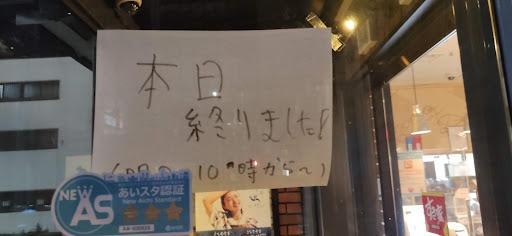 本日
終りました!
10時から〜)
NEW
AS
あいスタ認証
New Aichi Standard